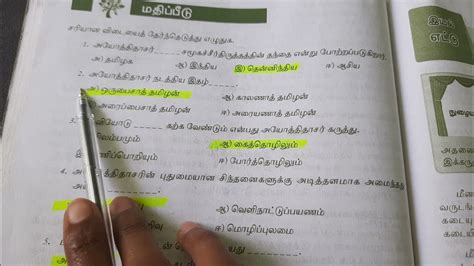 மதிப்பீடு
சரியான விடையைத் தேர்ந்தெடுத்து எழுதுக.
1. அயோத்திதாசர் ______ சமூகச்சீர்திருத்தத்தின் தந்தை என்று போற்றப்படுகிறார்.
அ) தமிழக ஆ) இந்திய இ) தென்னிந்திய ஈ) ஆசிய
2. அயோத்திதாசர் நடத்திய இதழ் ______
அ) ஒருபைசாத் தமிழன் ஆ) காலணாத் தமிழன்
இ) அரைப்பைசாத் தமிழன் ஈ) அரையணாத் தமிழன்
3. ______ கற்க வேண்டும் என்பது அயோத்திதாசர் கருத்து.
ஆ) கைத்தொழிலும்
ஈ) போர்த்தொழிலும்
4. அயோத்திதாசரின் புதுமையான சிந்தனைகளுக்கு அடித்தளமாக அமைந்தது
ஆ) வெளிநாட்டுப்பயணம்
ஈ) மொழிப்புலமை
5.